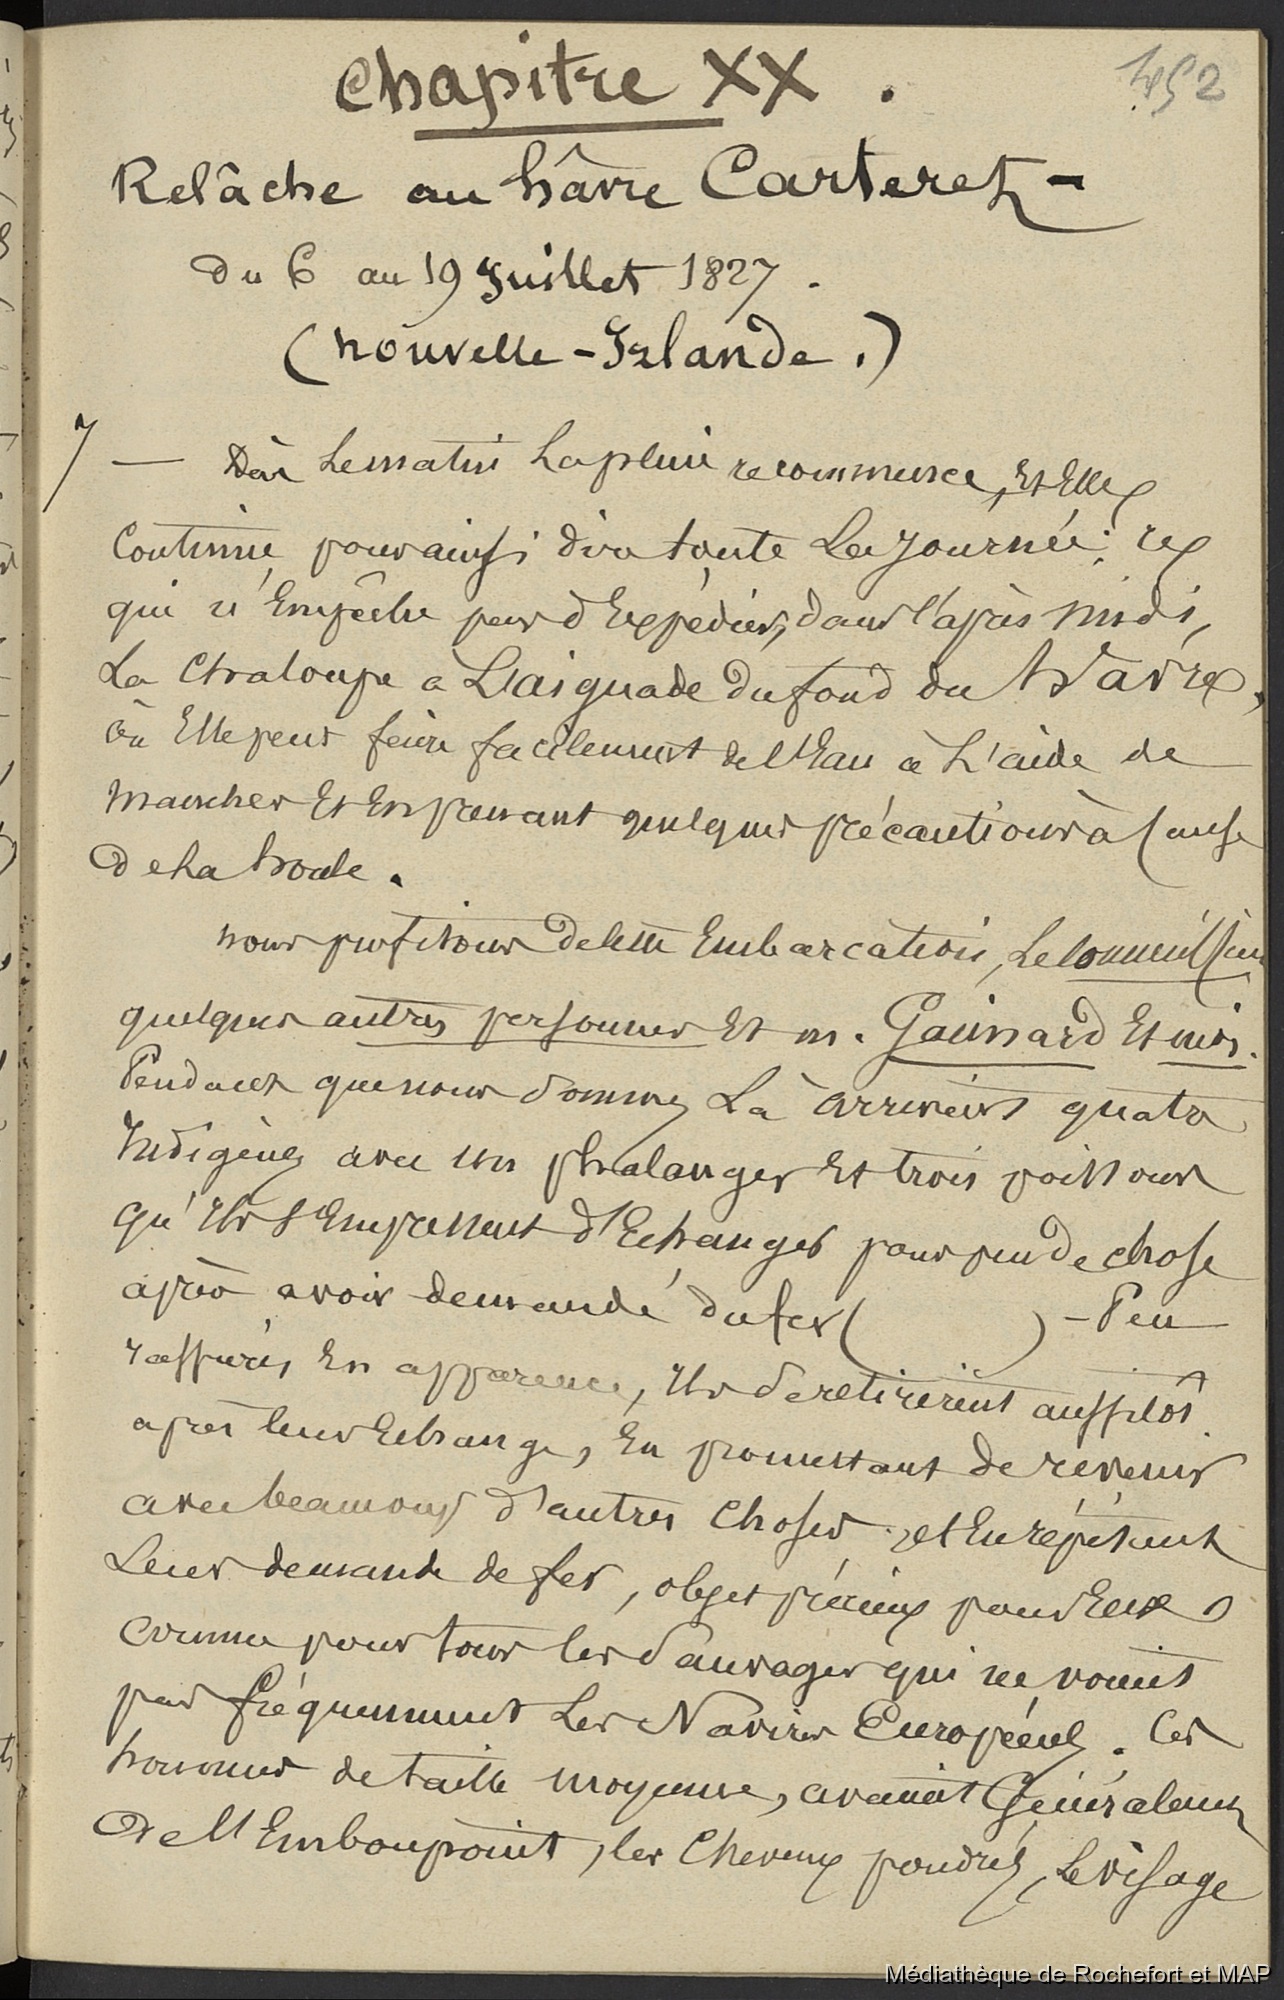 Chapitre XX .
452
Relâche au hâvre Carteret -
du 6 au 19 Juillet 1827 .
(Nouvelle-Irlande.)
7 — Dès le matin la pluie recommence, et elle
continue, pour ainsi dire toute la journée: ce
qui n'empêche pas d'expédier, dans l'après midi,
la chaloupe à l'aiguade du fond du hâvre,
où elle peut faire facilement de l'eau à l'aide de
manches et en prenant quelques précautions à cause
de la houle.
nous profitons de cette embarcation,
quelques autres personnes et m. Gaimard et moi.
Pendant que nous sommes là arrivent quatre
Indigènes avec un phalanger et trois poissons
qu'ils s'empressent d'échanger pour peu de chose
après avoir demandé du fer ( ) - Peu
rassurés en apparence, ils se retirèrent aussitôt
après leur échange, en promettant de revenir
avec beaucoup d'autres choses, et en répétant
leur demande de fer, objet précieux pour eux,
comme pour tous les sauvages qui ne voient
pas fréquemment les Navires Européens. Ces
hommes de taille moyenne, avaient généralement
de l'embonpoint, les cheveux poudrés, le visage
Médiathèque de Rochefort et MAP